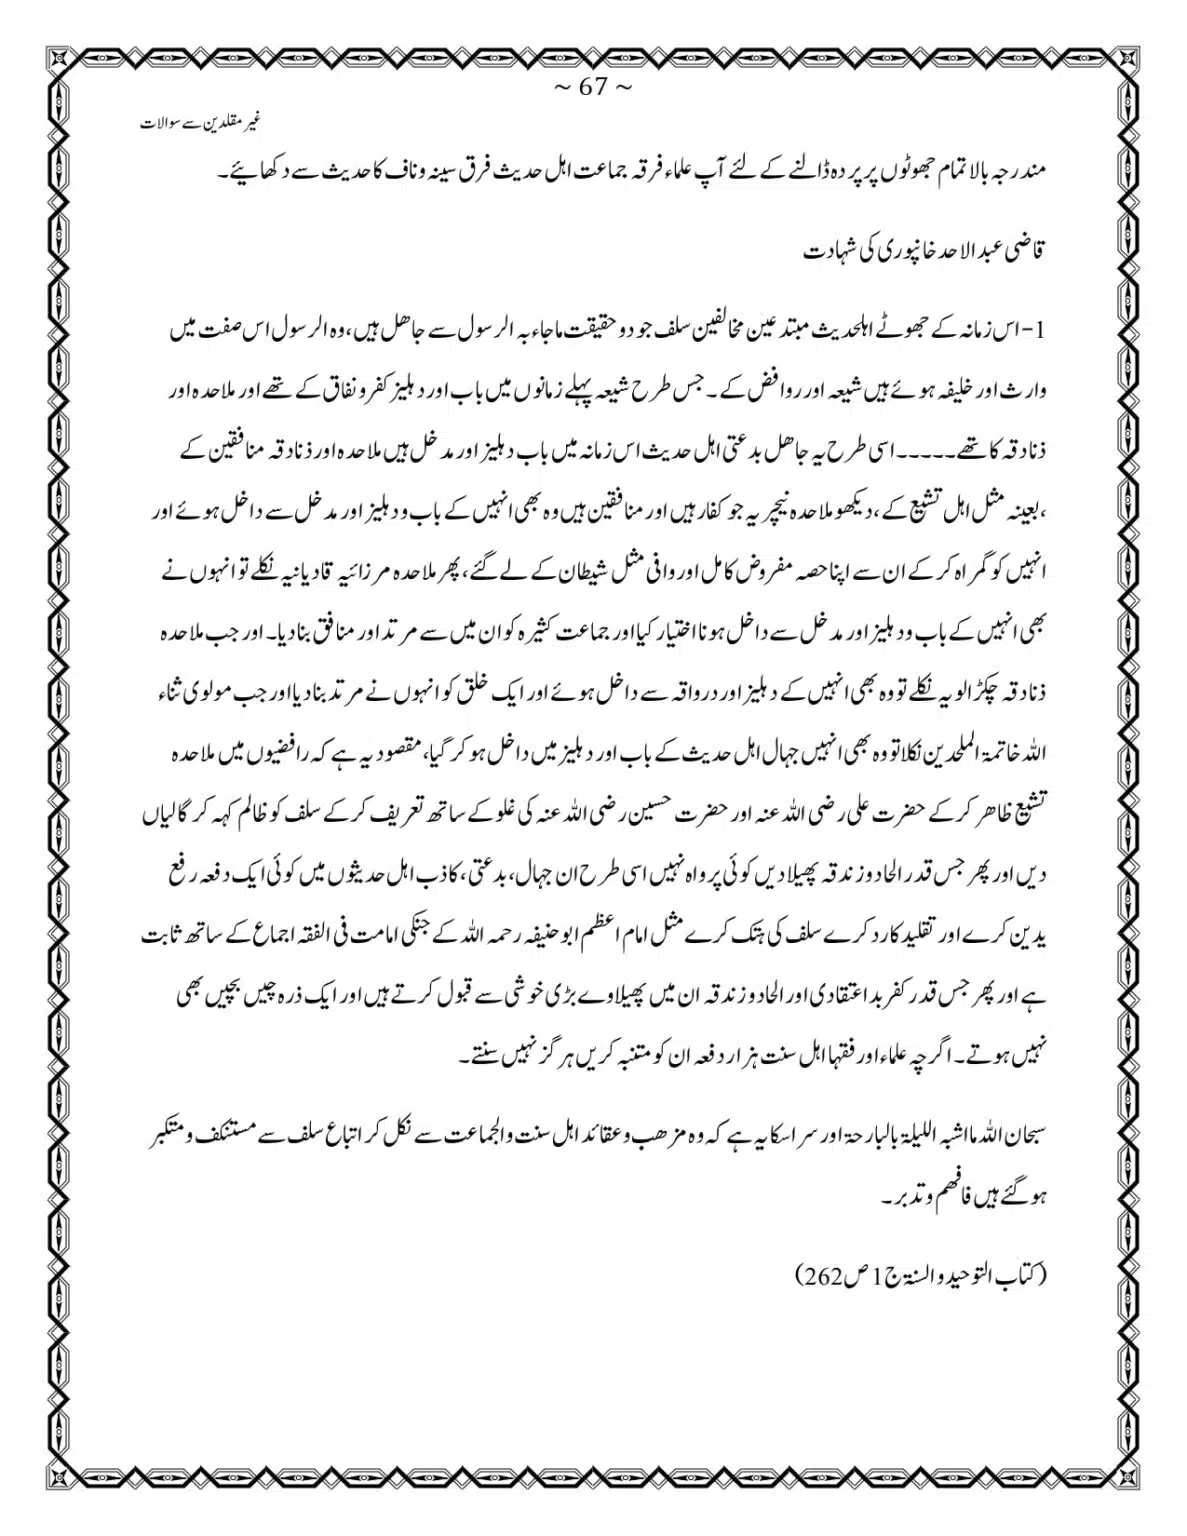 ~ 67 ~
غیر مقلدین سے سوالات
مندرجہ بالا تمام جھوٹوں پر پردہ ڈالنے کے لئے آپ علماء فرقہ جماعت اہل حدیث فرق سینہ و ناف کا حدیث سے دکھایئے۔
قاضی عبد الاحد خانپوری کی شہادت
1-اس زمانہ کے جھوٹے اہلحدیث مبتدعین مخالفین سلف جو دو حقیقت ماجاءبہ الرسول سے جاھل ہیں،وہ الرسول اس صفت میں
وارث اور خلیفہ ہوئے ہیں شیعہ اور روافض کے۔ جس طرح شیعہ پہلے زمانوں میں باب اور دہلیز کفر و نفاق کے تھے اور ملاحدہ اور
ذنادقہ کا تھے۔۔۔۔۔اسی طرح یہ جاھل بدعتی اہل حدیث اس زمانہ میں باب دہلیز اور مدخل ہیں ملاحدہ اور ذنادقہ منافقین کے
،بعینہ مثل اہل تشیع کے ،دیکھو ملاحدہ نیچریہ جو کفار ہیں اور منافقین ہیں وہ بھی انہیں کے باب و دہلیز اور مدخل سے داخل ہوئے اور
انہیں کو گمراہ کرکے ان سے اپنا حصہ مفروض کامل اور وافی مثل شیطان کے لے گئے، پھر ملاحدہ مرزائیہ قادیانیہ نکلے تو انہوں نے
بھی انہیں کے باب و دہلیز اور مدخل سے داخل ہونا اختیار کیا اور جماعت کثیرہ کو ان میں سے مرتد اور منافق بنا دیا۔ اور جب ملاحدہ
ذنادقہ چکڑالویہ نکلے تو وہ بھی انہیں کے دہلیز اور درواقہ سے داخل ہوئے اور ایک خلق کو انہوں نے مرتد بنا دیا اور جب مولوی ثناء
اللہ خاتمۃ الملحدین نکلا تو وہ بھی انہیں جہال اہل حدیث کے باب اور دہلیز میں داخل ہو کر گیا، مقصود یہ ہے کہ رافضیوں میں ملاحدہ
تشیع ظاھر کرکے حضرت علی رضی اللہ عنہ اور حضرت حسین رضی اللہ عنہ کی غلو کے ساتھ تعریف کرکے سلف کو ظالم کہہ کر گالیاں
دیں اور پھر جس قدر الحاد و زندقہ پھیلا دیں کوئی پرواہ نہیں اسی طرح ان جہال، بدعتی، کاذب اہل حدیثوں میں کوئی ایک دفعہ رفع
یدین کرے اور تقلید کا رد کرے سلف کی ہتک کرے مثل امام اعظم ابو حنیفہ رحمہ اللہ کے جنکی امامت فی الفقہ اجماع کے ساتھ ثابت
ہے اور پھر جس قدر کفر بد اعتقادی اور الحاد و زندقہ ان میں پھیلاوے بڑی خوشی سے قبول کرتے ہیں اور ایک ذرہ چیں بچیں بھی
نہیں ہوتے۔ اگرچہ علماء اور فقہا اہل سنت ہزار دفعہ ان کو متنبہ کریں ہرگز نہیں سنتے۔
سبحان اللہ ما اشبہ اللیلۃ بالبارحۃ اور سر اسکا یہ ہے کہ وہ مزھب و عقائد اہل سنت والجماعت سے نکل کر اتباع سلف سے مستنکف و متکبر
ہو گئے ہیں فافھم وتدبر۔
(کتاب التوحید والسنۃ ج1 ص262)